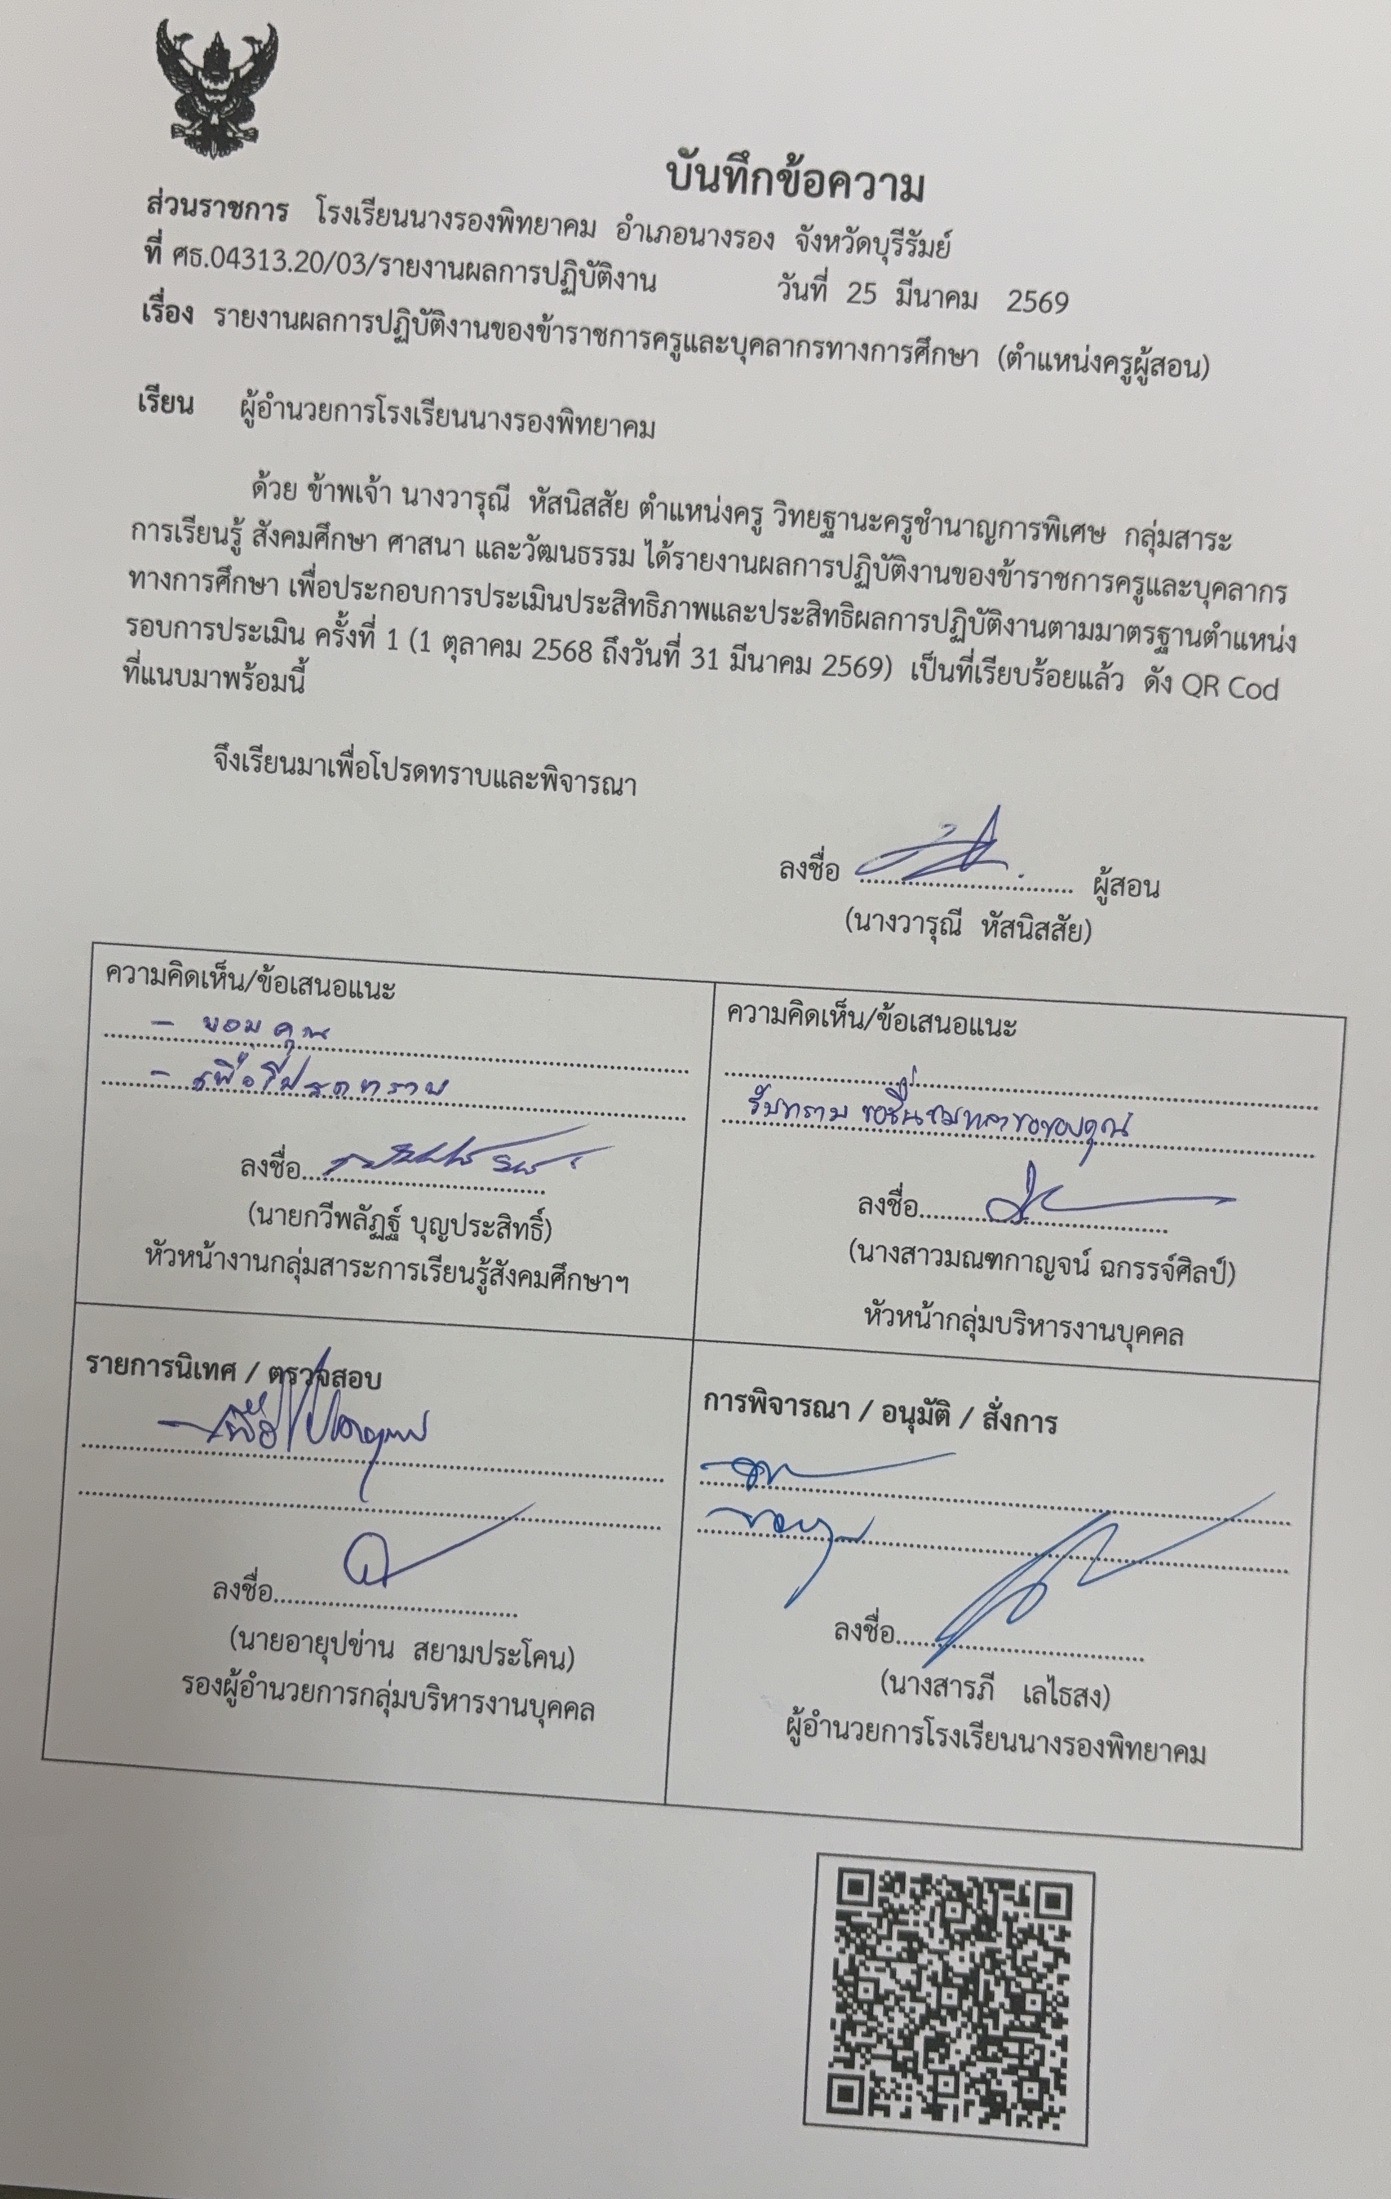 บันทึกข้อความ
ส่วนราชการ โรงเรียนนางรองพิทยาคม อำเภอนางรอง จังหวัดบุรีรัมย์
ที่ ศธ.04313.20/03/รายงานผลการปฏิบัติงาน วันที่ 25 มีนาคม 2569
เรื่อง รายงานผลการปฏิบัติงานของข้าราชการครูและบุคลากรทางการศึกษา (ตำแหน่งครูผู้สอน)
เรียน ผู้อำนวยการโรงเรียนนางรองพิทยาคม
ด้วย ข้าพเจ้า นางวารุณี หัสนิสสัย ตำแหน่งครู วิทยฐานะครูชำนาญการพิเศษ กลุ่มสาระ
การเรียนรู้ สังคมศึกษา ศาสนา และวัฒนธรรม ได้รายงานผลการปฏิบัติงานของข้าราชการครูและบุคลากร
ทางการศึกษา เพื่อประกอบการประเมินประสิทธิภาพและประสิทธิผลการปฏิบัติงานตามมาตรฐานตำแหน่ง
รอบการประเมิน ครั้งที่ 1 (1 ตุลาคม 2568 ถึงวันที่ 31 มีนาคม 2569) เป็นที่เรียบร้อยแล้ว ดัง QR Cod
ที่แนบมาพร้อมนี้
จึงเรียนมาเพื่อโปรดทราบและพิจารณา
ลงชื่อ ผู้สอน
(นางวารุณี หัสนิสสัย)
ความคิดเห็น/ข้อเสนอแนะ
- ขอบคุณ
- เพื่อโปรดทราบ
ลงชื่อ
(นายกวีพลัฏฐ์ บุญประสิทธิ์)
หัวหน้างานกลุ่มสาระการเรียนรู้สังคมศึกษาฯ
ความคิดเห็น/ข้อเสนอแนะ
รับทราบ ขอชื่นชม
ลงชื่อ
(นางสาวมณฑกาญจน์ ฉกรรจ์ศิลป์)
หัวหน้ากลุ่มบริหารงานบุคคล
รายการนิเทศ / ตรวจสอบ
- เพื่อโปรดทราบ
ลงชื่อ
(นายอายุปข่าน สยามประโคน)
รองผู้อำนวยการกลุ่มบริหารงานบุคคล
การพิจารณา / อนุมัติ / สั่งการ
- ขอบคุณ
ลงชื่อ
(นางสารภี เลไธสง)
ผู้อำนวยการโรงเรียนนางรองพิทยาคม